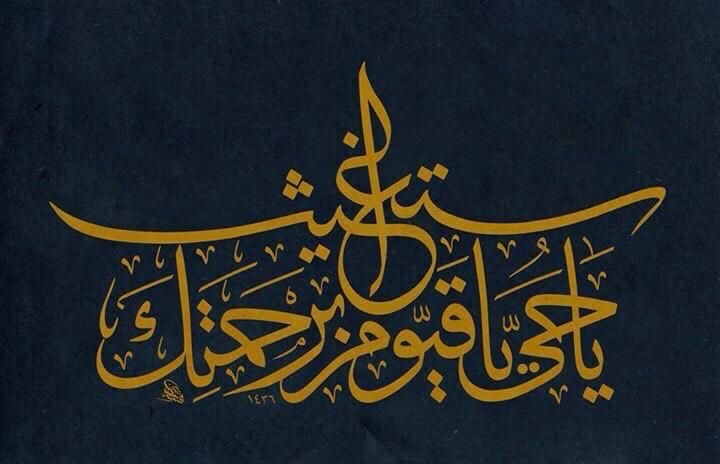 يَا حَيُّ يَا قَيُّومُ بِرَحْمَتِكَ
أستغيث
١٤٣٦